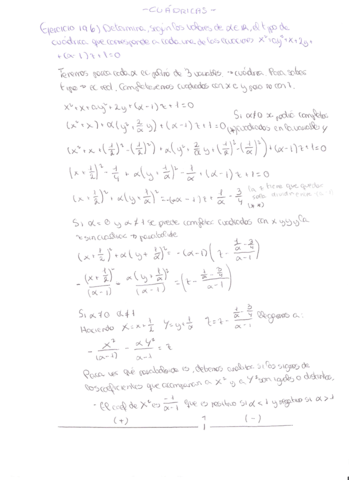 - CUÁDRICAS -
Ejercicio 19 b) Determina, según los valores de α∈R, el tipo de
cuádrica que corresponde a cada una de las ecuaciones x²+αy²+x+2y+
+(α-1)z+1=0
Tenemos para cada α ec. polinó. de 3 variables → cuádrica. Para saber
tipo → α real. Completaremos cuadrados con x e y pero no con z.
x²+x+αy²+2y+(α-1)z+1=0
Si α≠0 podré completar
(x²+x)+α(y²+2/α y)+(α-1)z+1=0 cuadrados en la variable y
(x²+x+(1/2)²-(1/2)²)+α(y²+2/α y+(1/α)²-(1/α)²)+(α-1)z+1=0
(x+1/2)²-1/4+α(y+1/α)²-1/α+(α-1)z+1=0
(x+1/2)²+α(y+1/α)²=-(α-1)z+1/α-3/4
Si α≠0 y α≠1 se puede completar cuadrados con x y y
(x+1/2)²+α(y+1/α)²=-(α-1)(z-(1/α-3/4)/(α-1))
-(x+1/2)²/(α-1)-α(y+1/α)²/(α-1)=(z-(1/α-3/4)/(α-1))
Si α≠0 α≠1
Haciendo X=x+1/2 Y=y+1/α Z=z-(1/α-3/4)/(α-1) llegamos a:
-X²/(α-1)-αY²/(α-1)=Z
Para ver qué paraboloide es, debemos analizar si los signos de
los coeficientes que acompañan a X² y a Y² son iguales o distintos.
- El coef de X² es -1/(α-1) que es positivo si α<1 y negativo si α>1
(+) 1 (-)